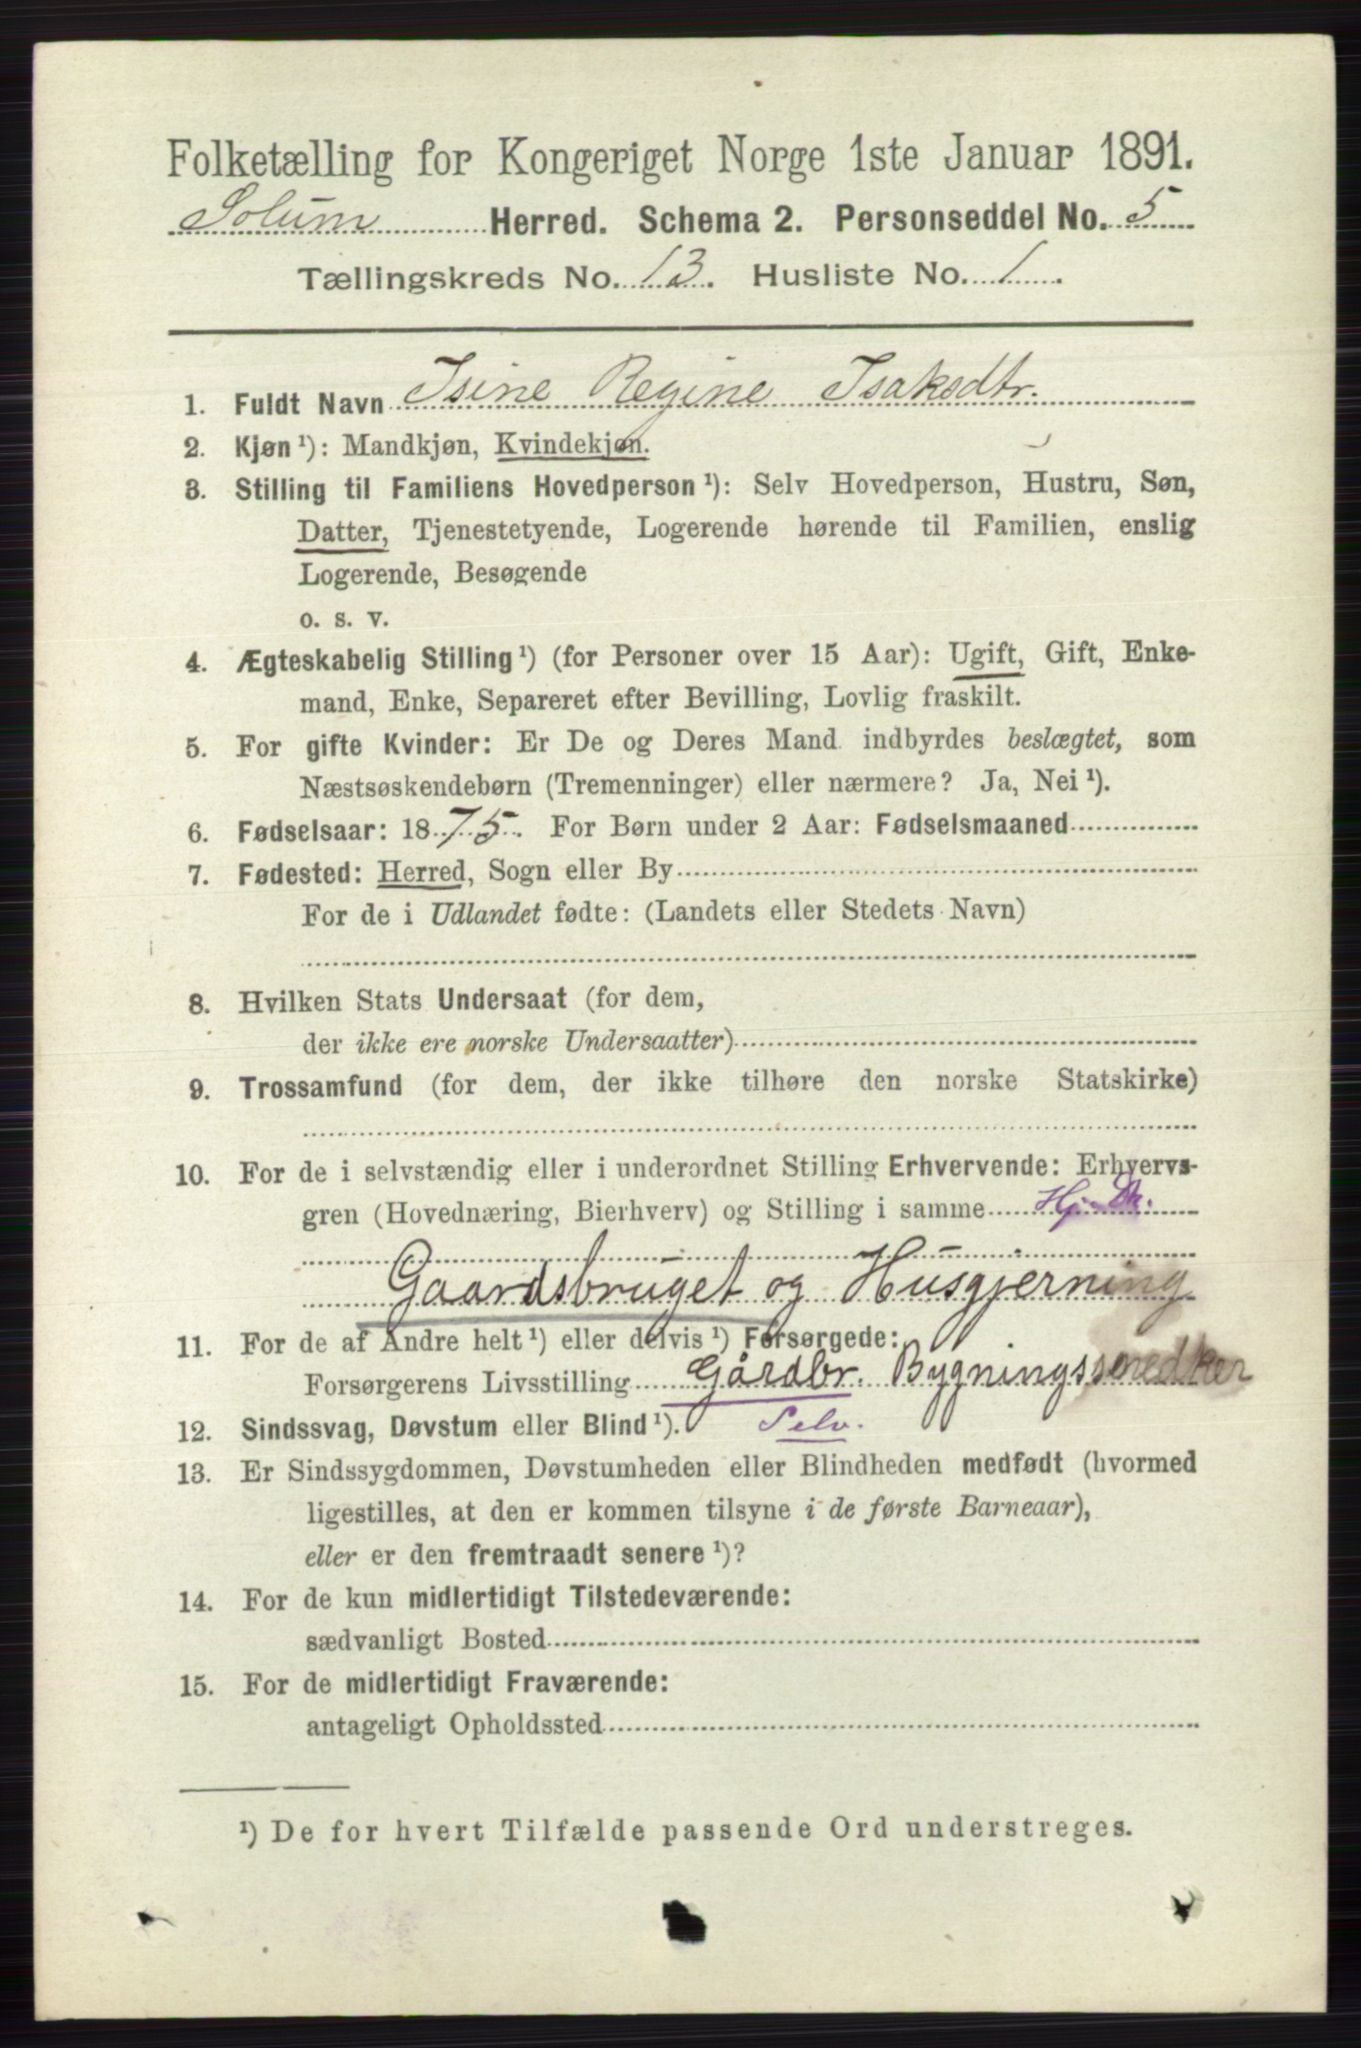 Folketælling for Kongeriget Norge 1ste Januar 1891.
Solum Herred. Schema 2. Personseddel No. 5
Tællingskreds No. 13. Husliste No. 1.
1. Fuldt Navn Isine Regine Isaksdtr.
2. Kjøn¹): Mandkjøn, Kvindekjøn.
3. Stilling til Familiens Hovedperson¹): Selv Hovedperson, Hustru, Søn,
Datter, Tjenestetyende, Logerende hørende til Familien, enslig
Logerende, Besøgende
o. s. v.
4. Ægteskabelig Stilling¹) (for Personer over 15 Aar): Ugift, Gift, Enke-
mand, Enke, Separeret efter Bevilling, Lovlig fraskilt.
5. For gifte Kvinder: Er De og Deres Mand indbyrdes beslægtet, som
Næstsøskendebørn (Tremenninger) eller nærmere? Ja, Nei¹).
6. Fødselsaar: 1875. For Børn under 2 Aar: Fødselsmaaned
7. Fødested: Herred, Sogn eller By
For de i Udlandet fødte: (Landets eller Stedets Navn)
8. Hvilken Stats Undersaat (for dem,
der ikke ere norske Undersaatter)
9. Trossamfund (for dem, der ikke tilhøre den norske Statskirke)
10. For de i selvstændig eller i underordnet Stilling Erhvervende: Erhvervs-
gren (Hovednæring, Bierhverv) og Stilling i samme
Gaardsbruget og Husgjerning
11. For de af Andre helt¹) eller delvis¹) Forsørgede:
Forsørgerens Livsstilling Gårdbr. Bygningssnedker
12. Sindssvag, Døvstum eller Blind¹). Selv.
13. Er Sindssygdommen, Døvstumheden eller Blindheden medfødt (hvormed
ligestilles, at den er kommen tilsyne i de første Barneaar),
eller er den fremtraadt senere¹)?
14. For de kun midlertidigt Tilstedeværende:
sædvanligt Bosted
15. For de midlertidigt Fraværende:
antageligt Opholdssted
¹) De for hvert Tilfælde passende Ord understreges.